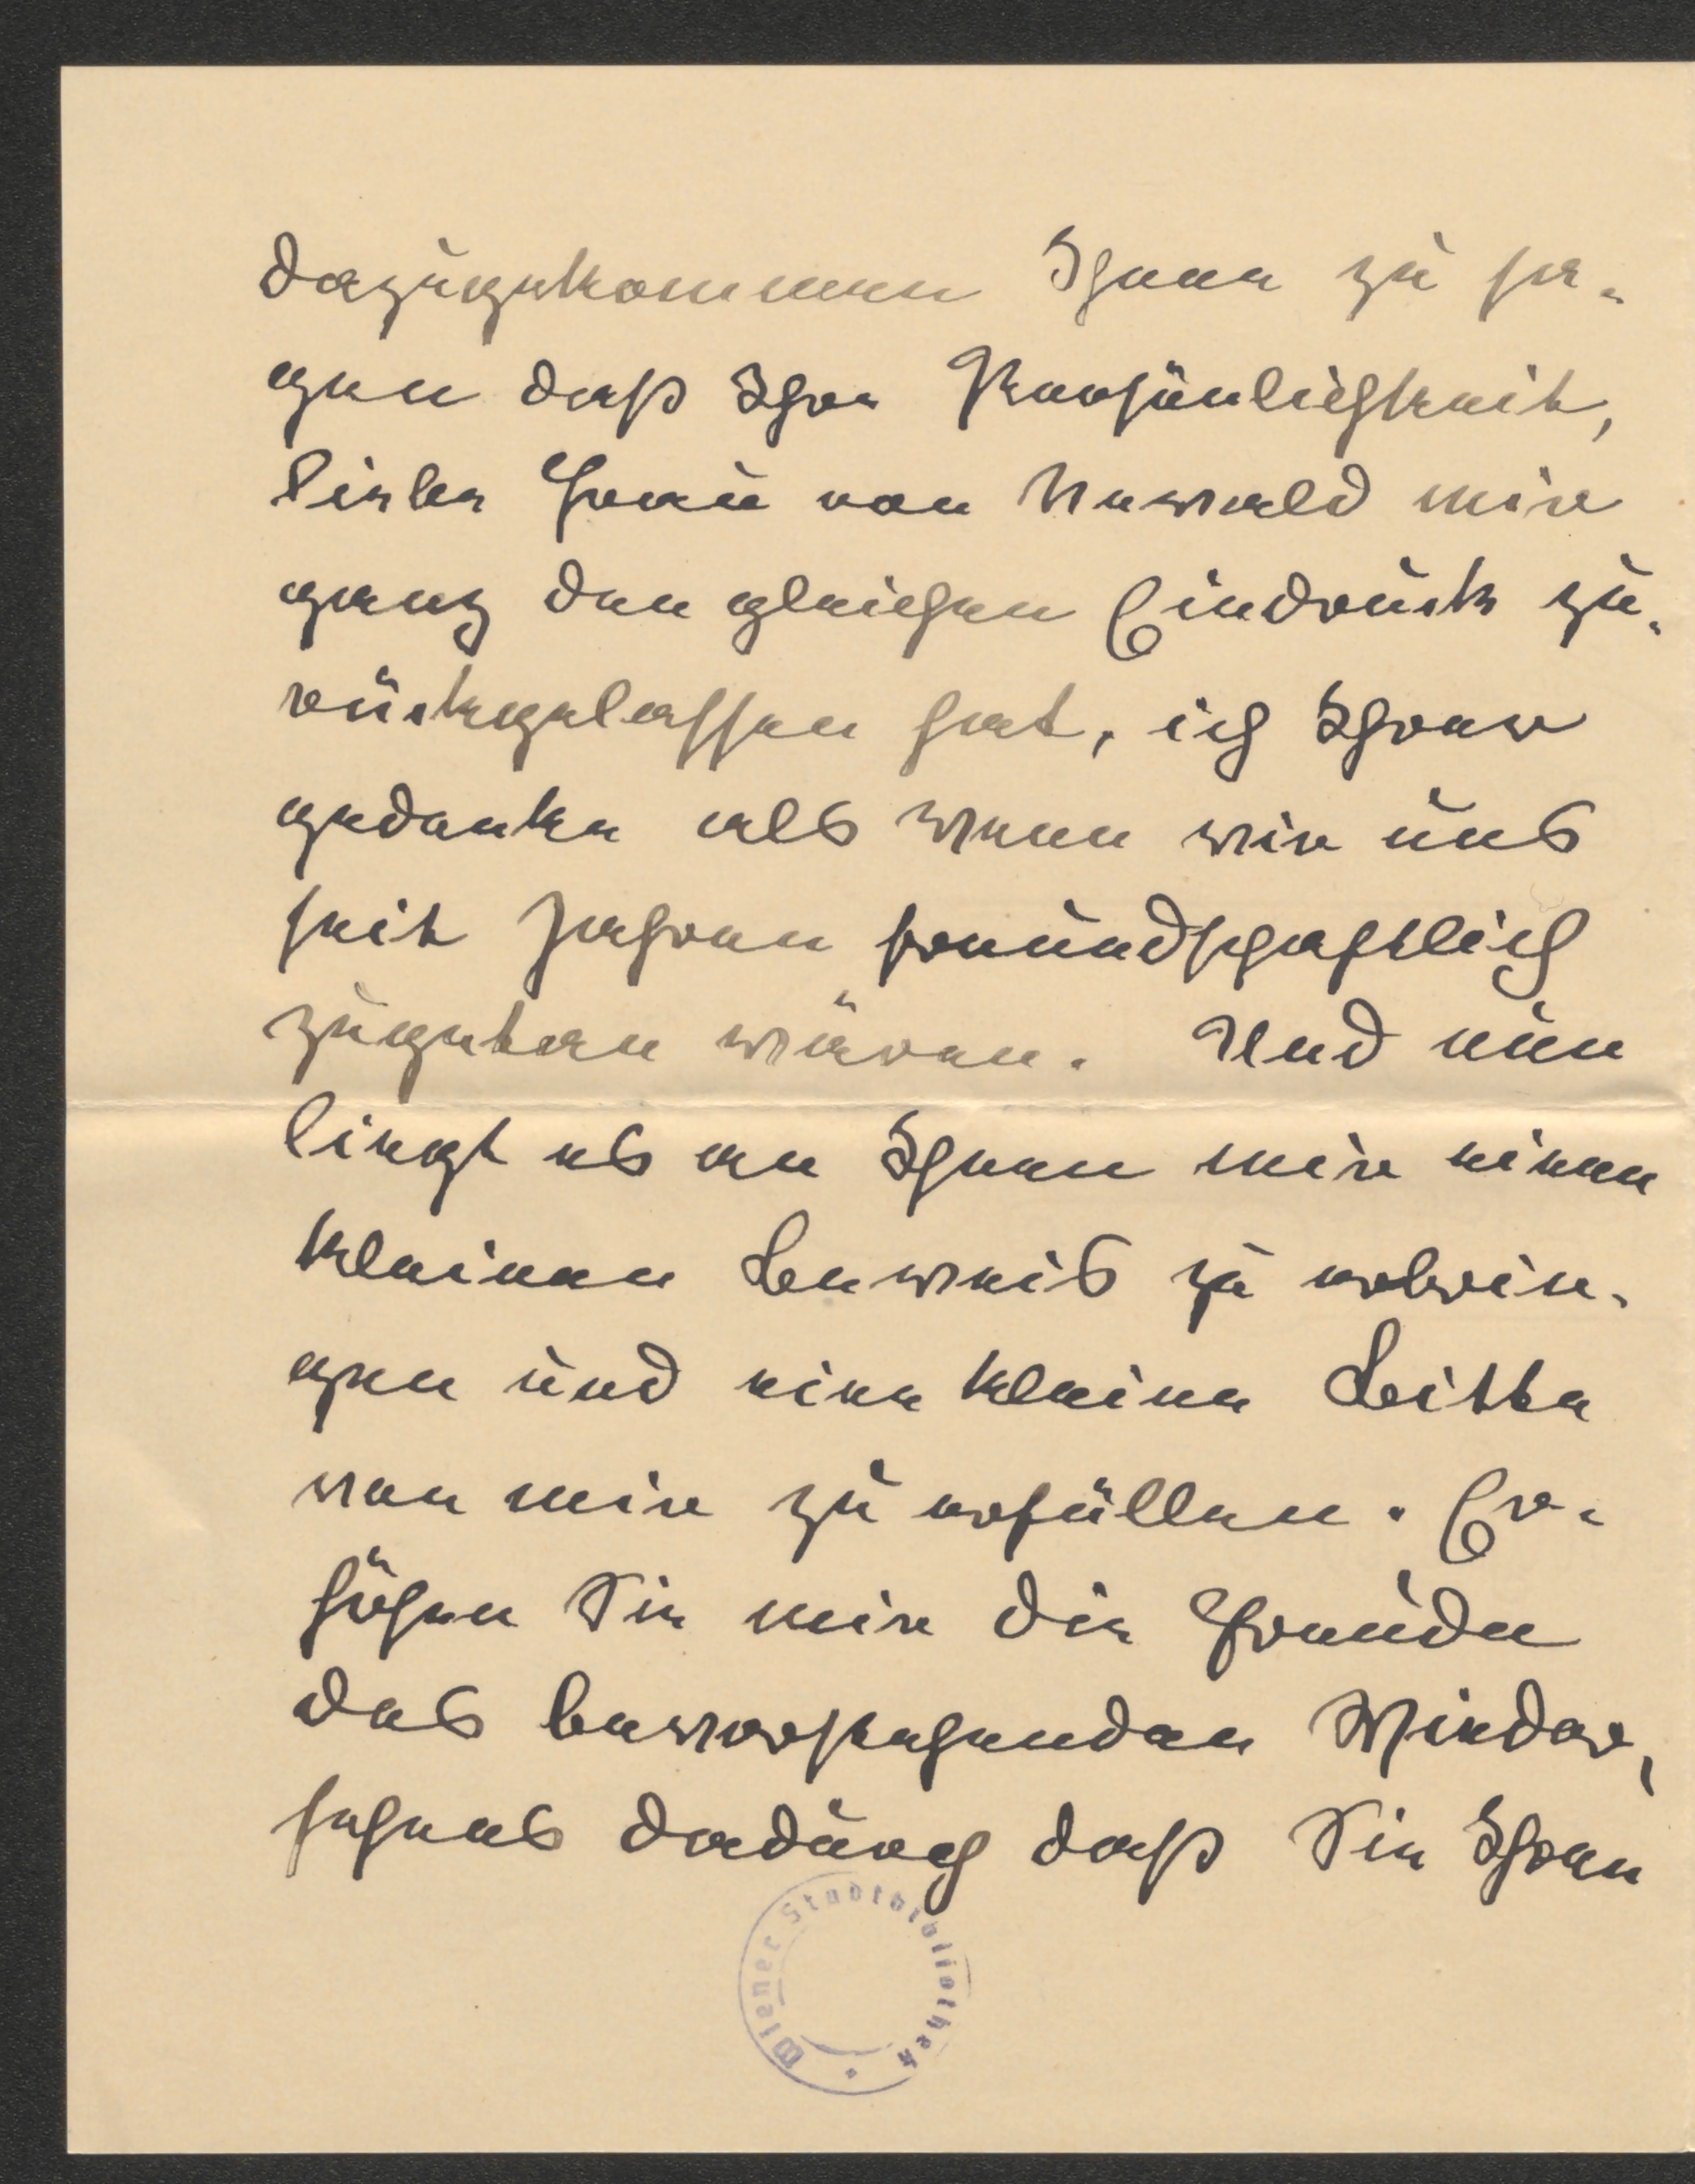 dazugekommen Ihnen zu sa-
gen daß Ihre Persönlichkeit,
liebe Frau von Newald mir
ganz den gleichen Eindruck zu-
rückgelassen hat, ich Ihrer
gedenke als wenn wir uns
seit Jahren freundschaftlich
zugetan wären. Und nun
liegt es an Ihnen mir einen
kleinen Beweis zu erbrin-
gen und eine kleine Bitte
von mir zu erfüllen. Er-
höhen Sie mir die Freude
des bevorstehenden Wieder-
sehens dadurch daß Sie Ihren
Wiener Stadtbibliothek